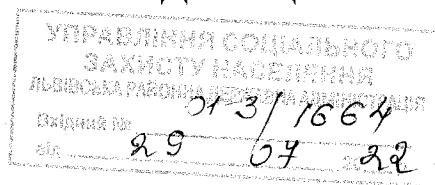 УПРАВЛІННЯ СОЦІАЛЬНОГО
ЗАХИСТУ НАСЕЛЕННЯ
ЛЬВІВСЬКА РАЙОННА ДЕРЖАВНА АДМІНІСТРАЦІЯ
Вхідний № 013/1664
від 29 07 2022